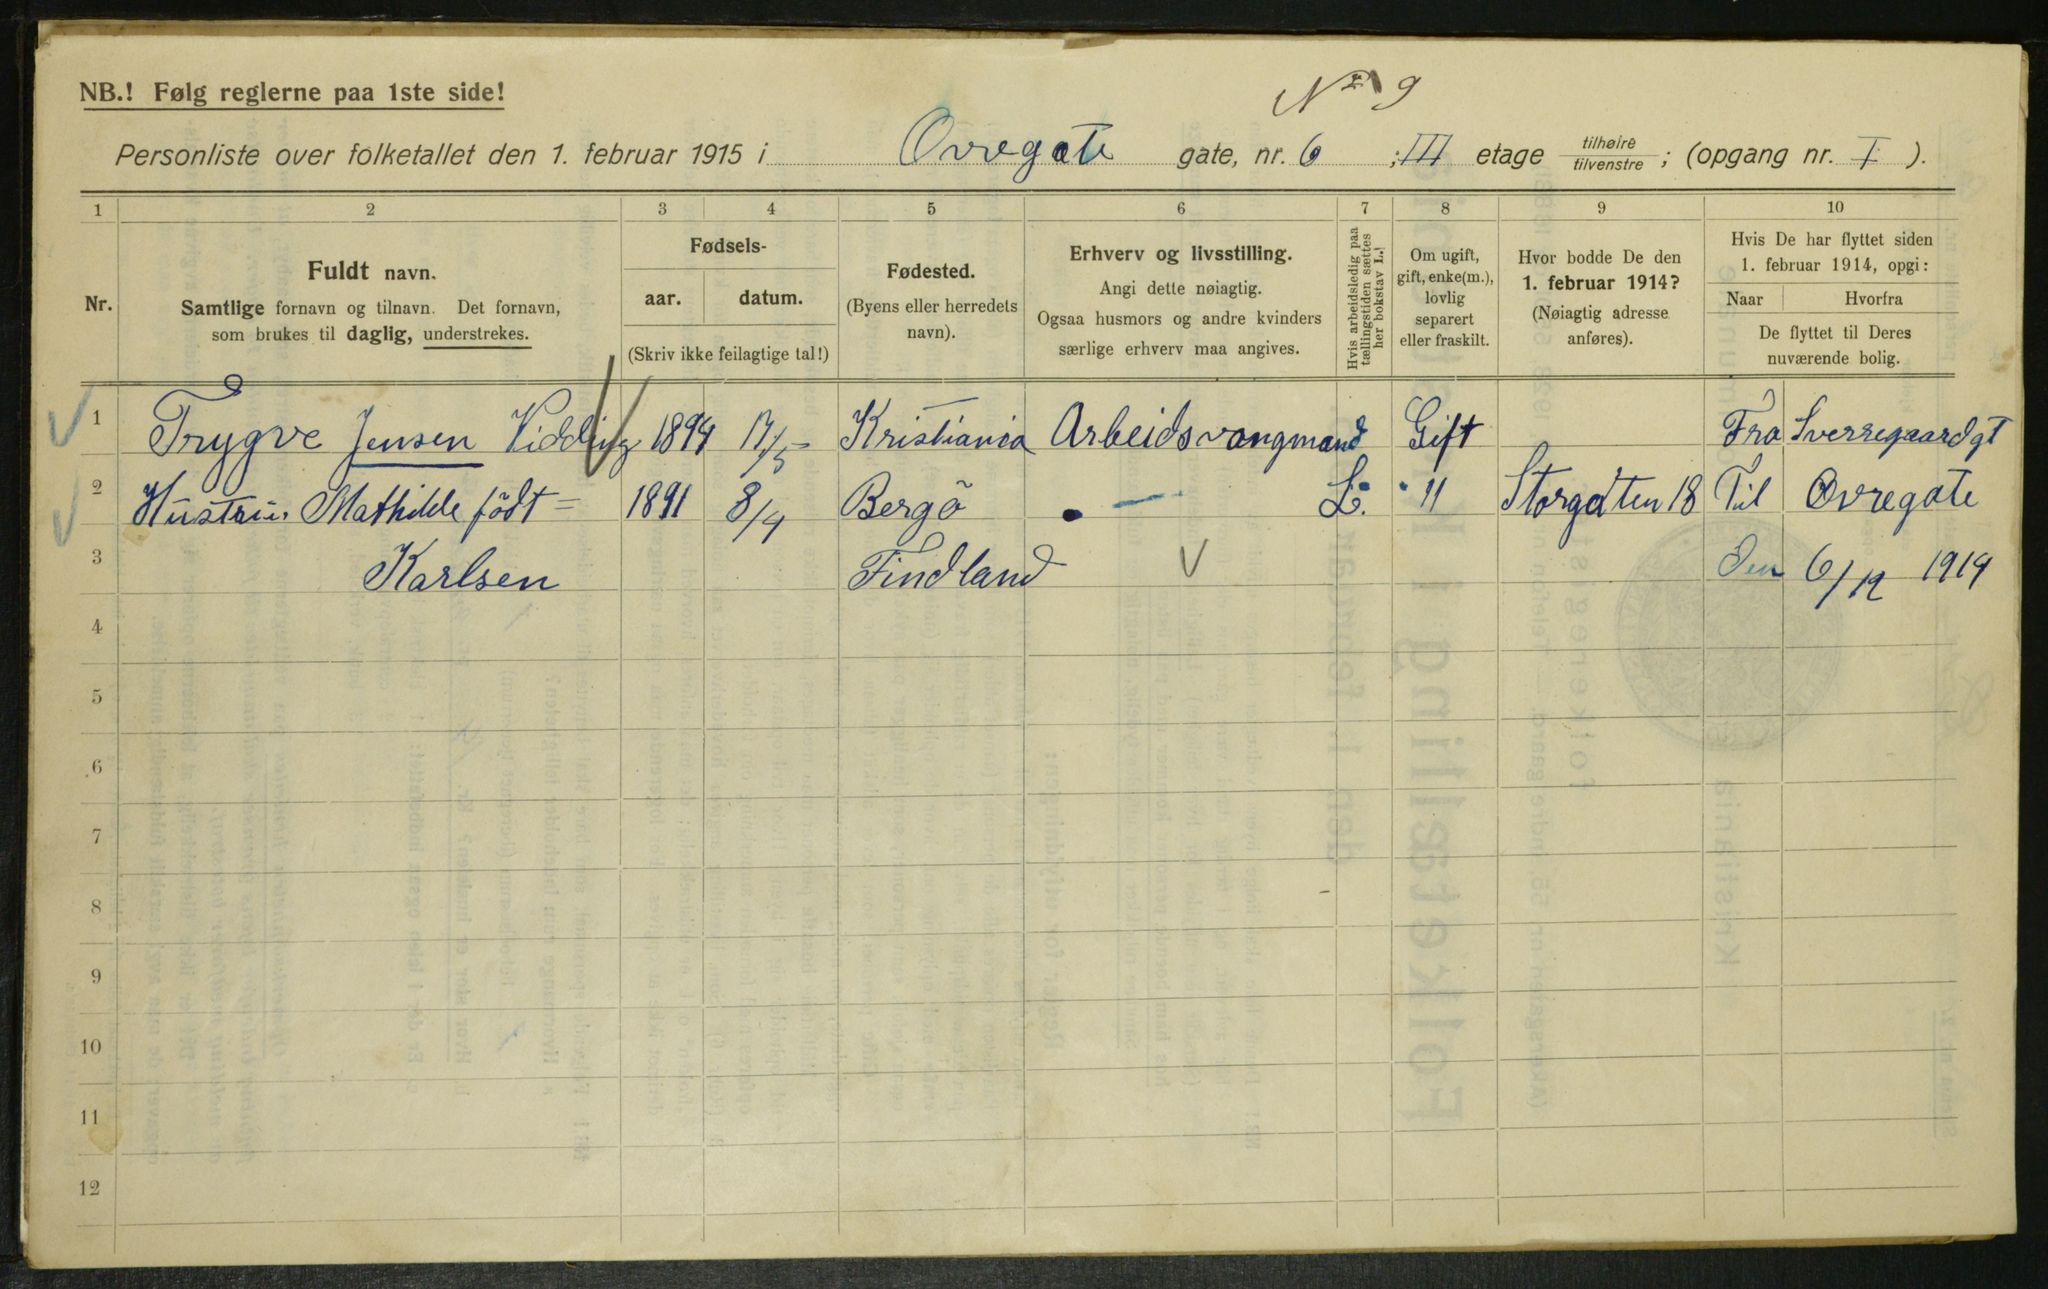 NB.! Følg reglerne paa 1ste side!
Nr 9
Personliste over folketallet den 1. februar 1915 i Ovregate gate, nr. 6 ; III etage tilhøire / tilvenstre ; (opgang nr. I ).
1 2 3 4 5 6 7 8 9 10
Nr.
Fuldt navn.
Samtlige fornavn og tilnavn. Det fornavn,
som brukes til daglig, understrekes.
Fødsels-
aar. datum.
(Skriv ikke feilagtige tal!)
Fødested.
(Byens eller herredets
navn).
Erhverv og livsstilling.
Angi dette nøiagtig.
Ogsaa husmors og andre kvinders
særlige erhverv maa angives.
Hvis arbeidsledig paa
tællingstiden sættes
her bokstav L.!
Om ugift,
gift, enke(m.),
lovlig
separert
eller fraskilt.
Hvor bodde De den
1. februar 1914?
(Nøiagtig adresse
anføres).
Hvis De har flyttet siden
1. februar 1914, opgi:
Naar Hvorfra
De flyttet til Deres
nuværende bolig.
1 Trygve Jensen Vidding 1894 17/5 = Kristiania Arbeidsvongmand Gift Fra Sverregaardgt
2 Hustru Mathilde födt = 1891 8/4 Bergö — L. 11 Storgaten 18 Til Ovregate
3 Karlsen Findland Den 6/12 1914
4
5
6
7
8
9
10
11
12